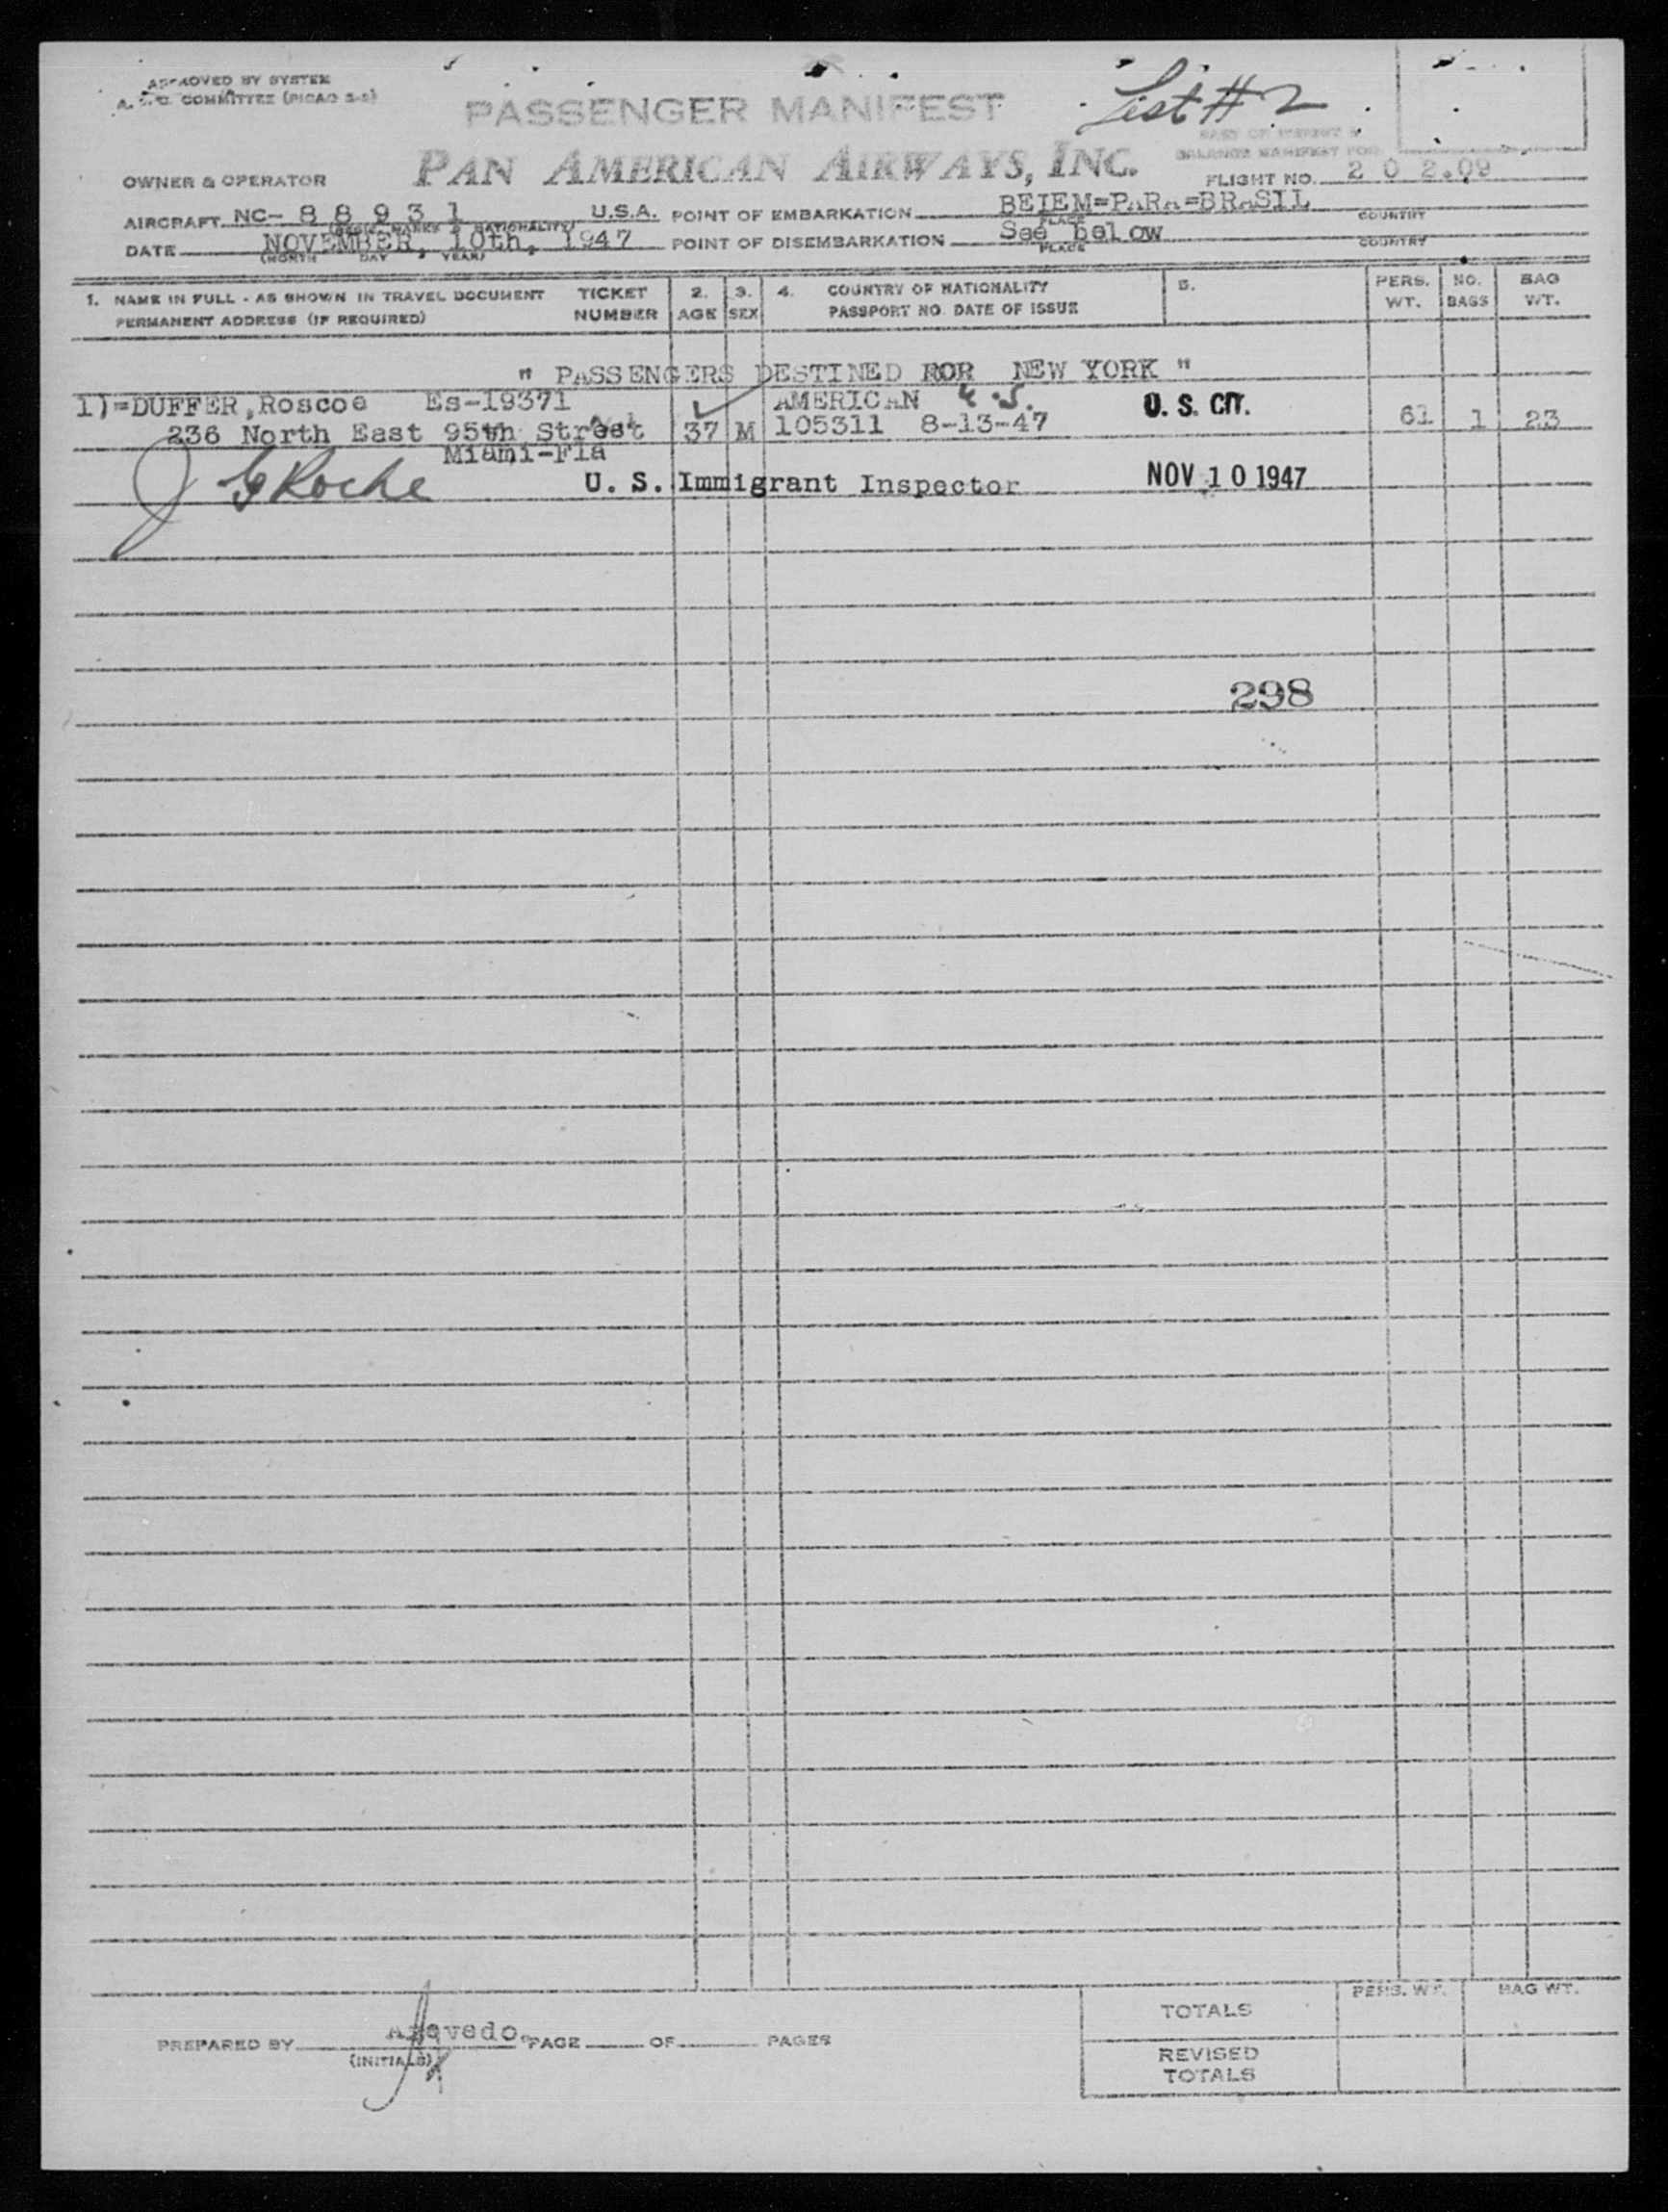 APPROVED BY SYSTEM
A.T.C. COMMITTEE (PICAO S-2)
PASSENGER MANIFEST
List # 2
PAN AMERICAN AIRWAYS, INC.
BALANCE MANIFEST FOR
OWNER & OPERATOR
FLIGHT NO. 2 0 2.09
AIRCRAFT NC- 8 8 9 3 1 U.S.A. POINT OF EMBARKATION BELEM=PARA=BRASIL
(REGIS. MARKS & NATIONALITY) PLACE COUNTRY
DATE NOVEMBER, 10th, 1947 POINT OF DISEMBARKATION See below
(MONTH DAY YEAR) PLACE COUNTRY
1. NAME IN FULL - AS SHOWN IN TRAVEL DOCUMENT TICKET 2. 3. 4. COUNTRY OF NATIONALITY 5. PERS. NO. BAG
PERMANENT ADDRESS (IF REQUIRED) NUMBER AGE SEX PASSPORT NO. DATE OF ISSUE WT. BAGS WT.
" PASSENGERS DESTINED FOR NEW YORK "
1)=DUFFER,Roscoe Es-19371 AMERICAN U.S. U. S. CIT.
236 North East 95th Street 37 M 105311 8-13-47 61 1 23
Miami-Fla
J G Roche U. S. Immigrant Inspector NOV 10 1947
298
PREPARED BY Azevedo. PAGE OF PAGES
(INITIALS)
TOTALS PERS. WT. BAG WT.
REVISED
TOTALS